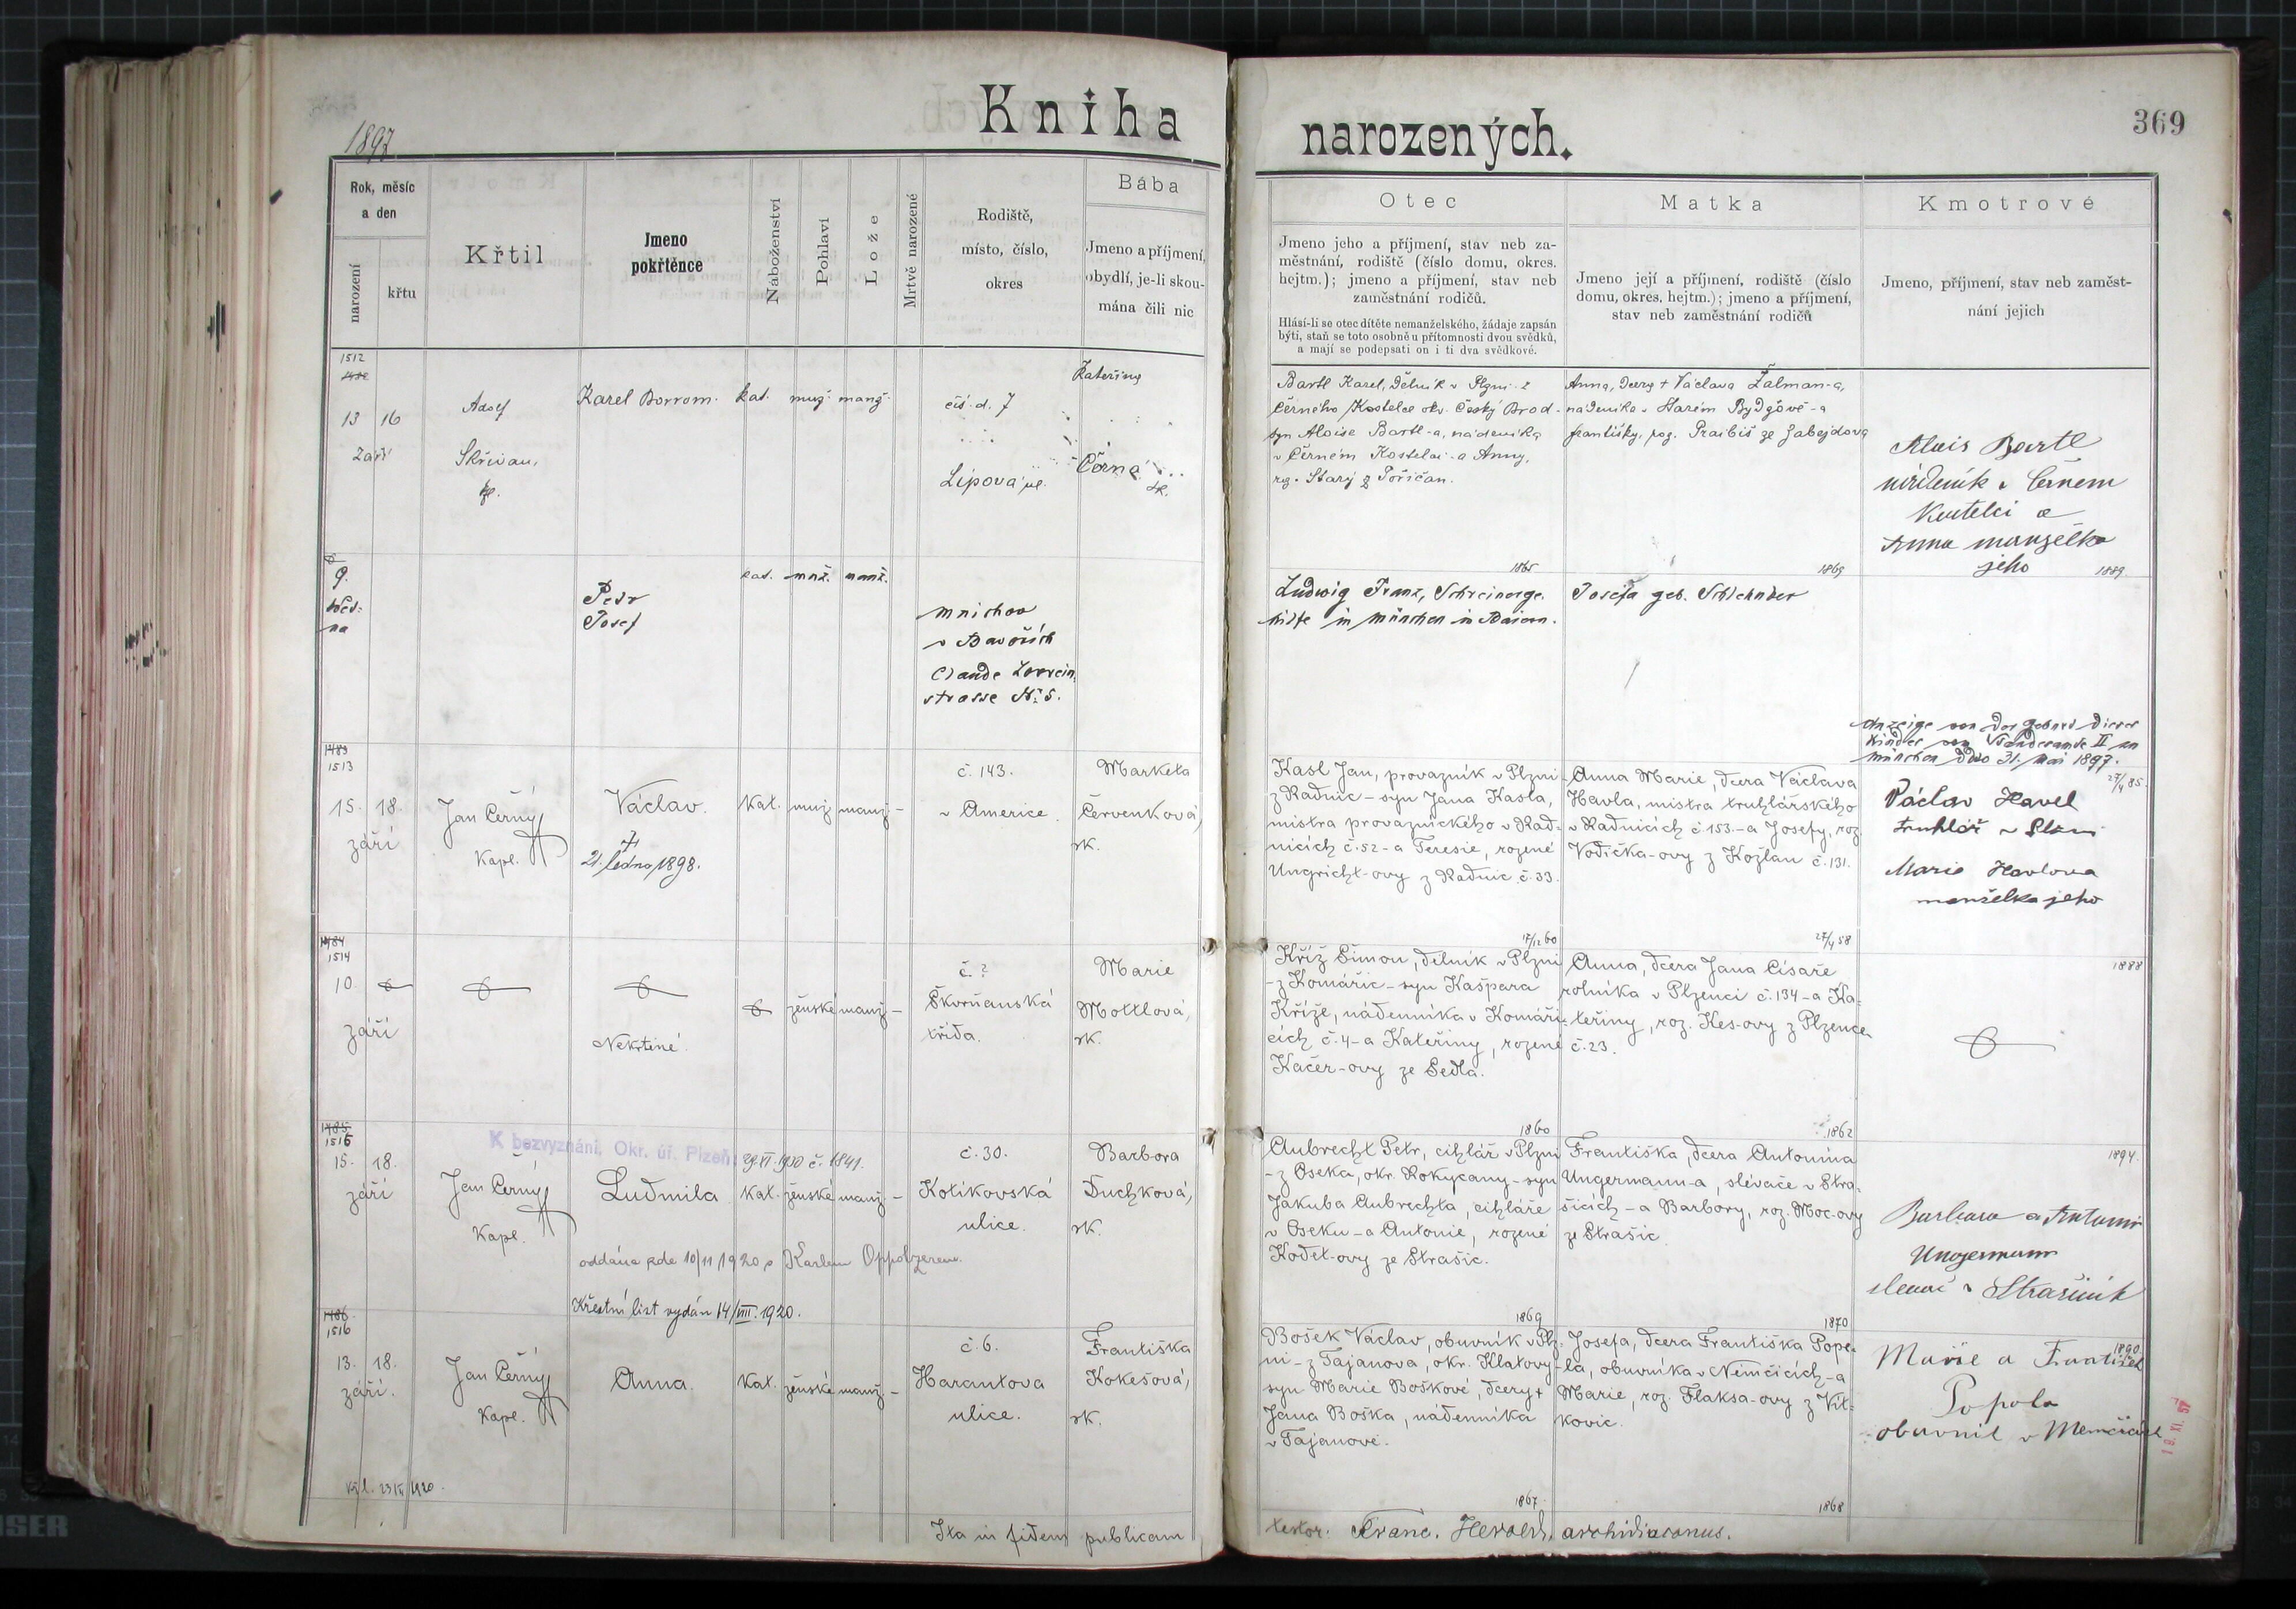 Kniha
narozených.
369
1897
Rok, měsíc
a den
narození
křtu
Křtil
Jmeno
pokřtěnce
Náboženství
Pohlaví
Lože
Mrtvě narozené
Rodiště,
místo, číslo,
okres
Bába
Jmeno a příjmení,
obydlí, je-li skou-
mána čili nic
Otec
Jmeno jeho a příjmení, stav neb za-
městnání, rodiště (číslo domu, okres.
hejtm.); jmeno a příjmení, stav neb
zaměstnání rodičů.
Hlásí-li se otec dítěte nemanželského, žádaje zapsán
býti, staň se toto osobně u přítomnosti dvou svědků,
a mají se podepsati on i ti dva svědkové.
Matka
Jmeno její a příjmení, rodiště (číslo
domu, okres. hejtm.); jmeno a příjmení,
stav neb zaměstnání rodičů
Kmotrové
Jmeno, příjmení, stav neb zaměst-
nání jejich
1512
13 16
září
Adolf
Skřivan,
kp.
Karel Borrom.
kat. muž. manž.
čís. d. 7
Lípová ul.
Kateřina
Černá
sk.
Bartl Karel, dělník v Plzni z
Černého Kostelce okr. Český Brod-
syn Aloise Bartl-a, nádeníka
v Černém Kostelci a Anny,
roz. Starý z Poříčan.
1865
Anna, dcera † Václava Žalman-a,
nádeníka v Starém Bydžově-a
Františky, roz.
1869
Alois Bartl
nádeník v Černém
Kostelci a
Anna manželka
jeho
1889
9.
Petr
Josef
kat. muž. manž.
Mnichov
v Bavořích
Claude Lorrein
strasse N. 5.
Ludwig Franz, Schreinerge
hilfe in München in Baiern.
Josefa geb.
Anzeige von der Geburt dieses
Kindes vom Standesamte II in
München ddto 31. Mai 1897.
1483
1513
15. 18.
září
Jan Černý
Kapl.
Václav.
†
21. ledna 1898.
Kat. muž manž. -
č. 143.
v Americe.
Marketa
Červenková,
sk.
Kasl Jan, provazník v Plzni-
z Radnic - syn Jana Kasla,
mistra provaznického v Rad-
nicích č. 52 - a Teresie, rozené
Ungricht-ovy z Radnic č. 33.
17/12 60
Anna Marie, dcera Václava
Havla, mistra truhlářského
v Radnicích č. 153. - a Josefy, roz.
Vodička-ovy z Kožlan č. 131.
27/4 58
27/4 85.
Václav Havel
truhlář v Plzni
Marie Havlova
manželka jeho
1484
1514
10
září
Nekrtěné.
ženské manž. -
č. ?
Škvrňanská
třída.
Marie
Mottlová,
sk.
Kříž Šimon, dělník v Plzni
- z Komářic - syn Kašpara
Kříže, nádenníka v Komáři-
cích č. 4 - a Kateřiny, rozené
Kačer-ovy ze Sedla.
1860
Anna, dcera Jana Císaře
rolníka v Plzenci č. 134 - a Ka-
teřiny, roz. Kes-ovy z Plzence
č. 23.
1862
1888
1485
1515
15. 18.
září
Jan Černý
Kapl.
K bezvyznání, Okr. úř. Plzeň
29.VI.1950 č. 1841.
Ludmila
oddána zde 10/11 1920 s Karlem Oppolzerem.
Křestní list vydán 14/VIII. 1920.
Kat. ženské manž. -
č. 30.
Kotikovská
ulice.
Barbora
Duchková,
sk.
Aubrecht Petr, cihlář v Plzni
- z Oseka, okr. Rokycany - syn
Jakuba Aubrechta, cihláře
v Oseku - a Antonie, rozené
Kodet-ovy ze Strašic.
1869
Františka, dcera Antonína
Ungermann-a, slévače v Stra-
šicích - a Barbory, roz. Moc-ovy
ze Strašic.
1870
1894.
Barbara a Antonin
Ungermann
slevač v Strašicích
1486
1516
13. 18.
září.
Jan Černý
Kapl.
Anna.
Kat. ženské manž. -
č. 6.
Harantova
ulice.
Františka
Kokešová,
sk.
Bošek Václav, obuvník v Plz-
ni - z Tajanova, okr. Klatovy -
syn Marie Boškové, dcery †
Jana Boška, nádenníka
v Tajanově.
1867
Josefa, dcera Františka Pope-
la, obuvníka v Němčicích - a
Marie, roz. Flaksa-ovy z Vít-
kovic.
1868
1890.
Marie a František
Popela
obuvník v Němčicích
Ita in fidem publicam
testor: Franc. Herold, archidiaconus.